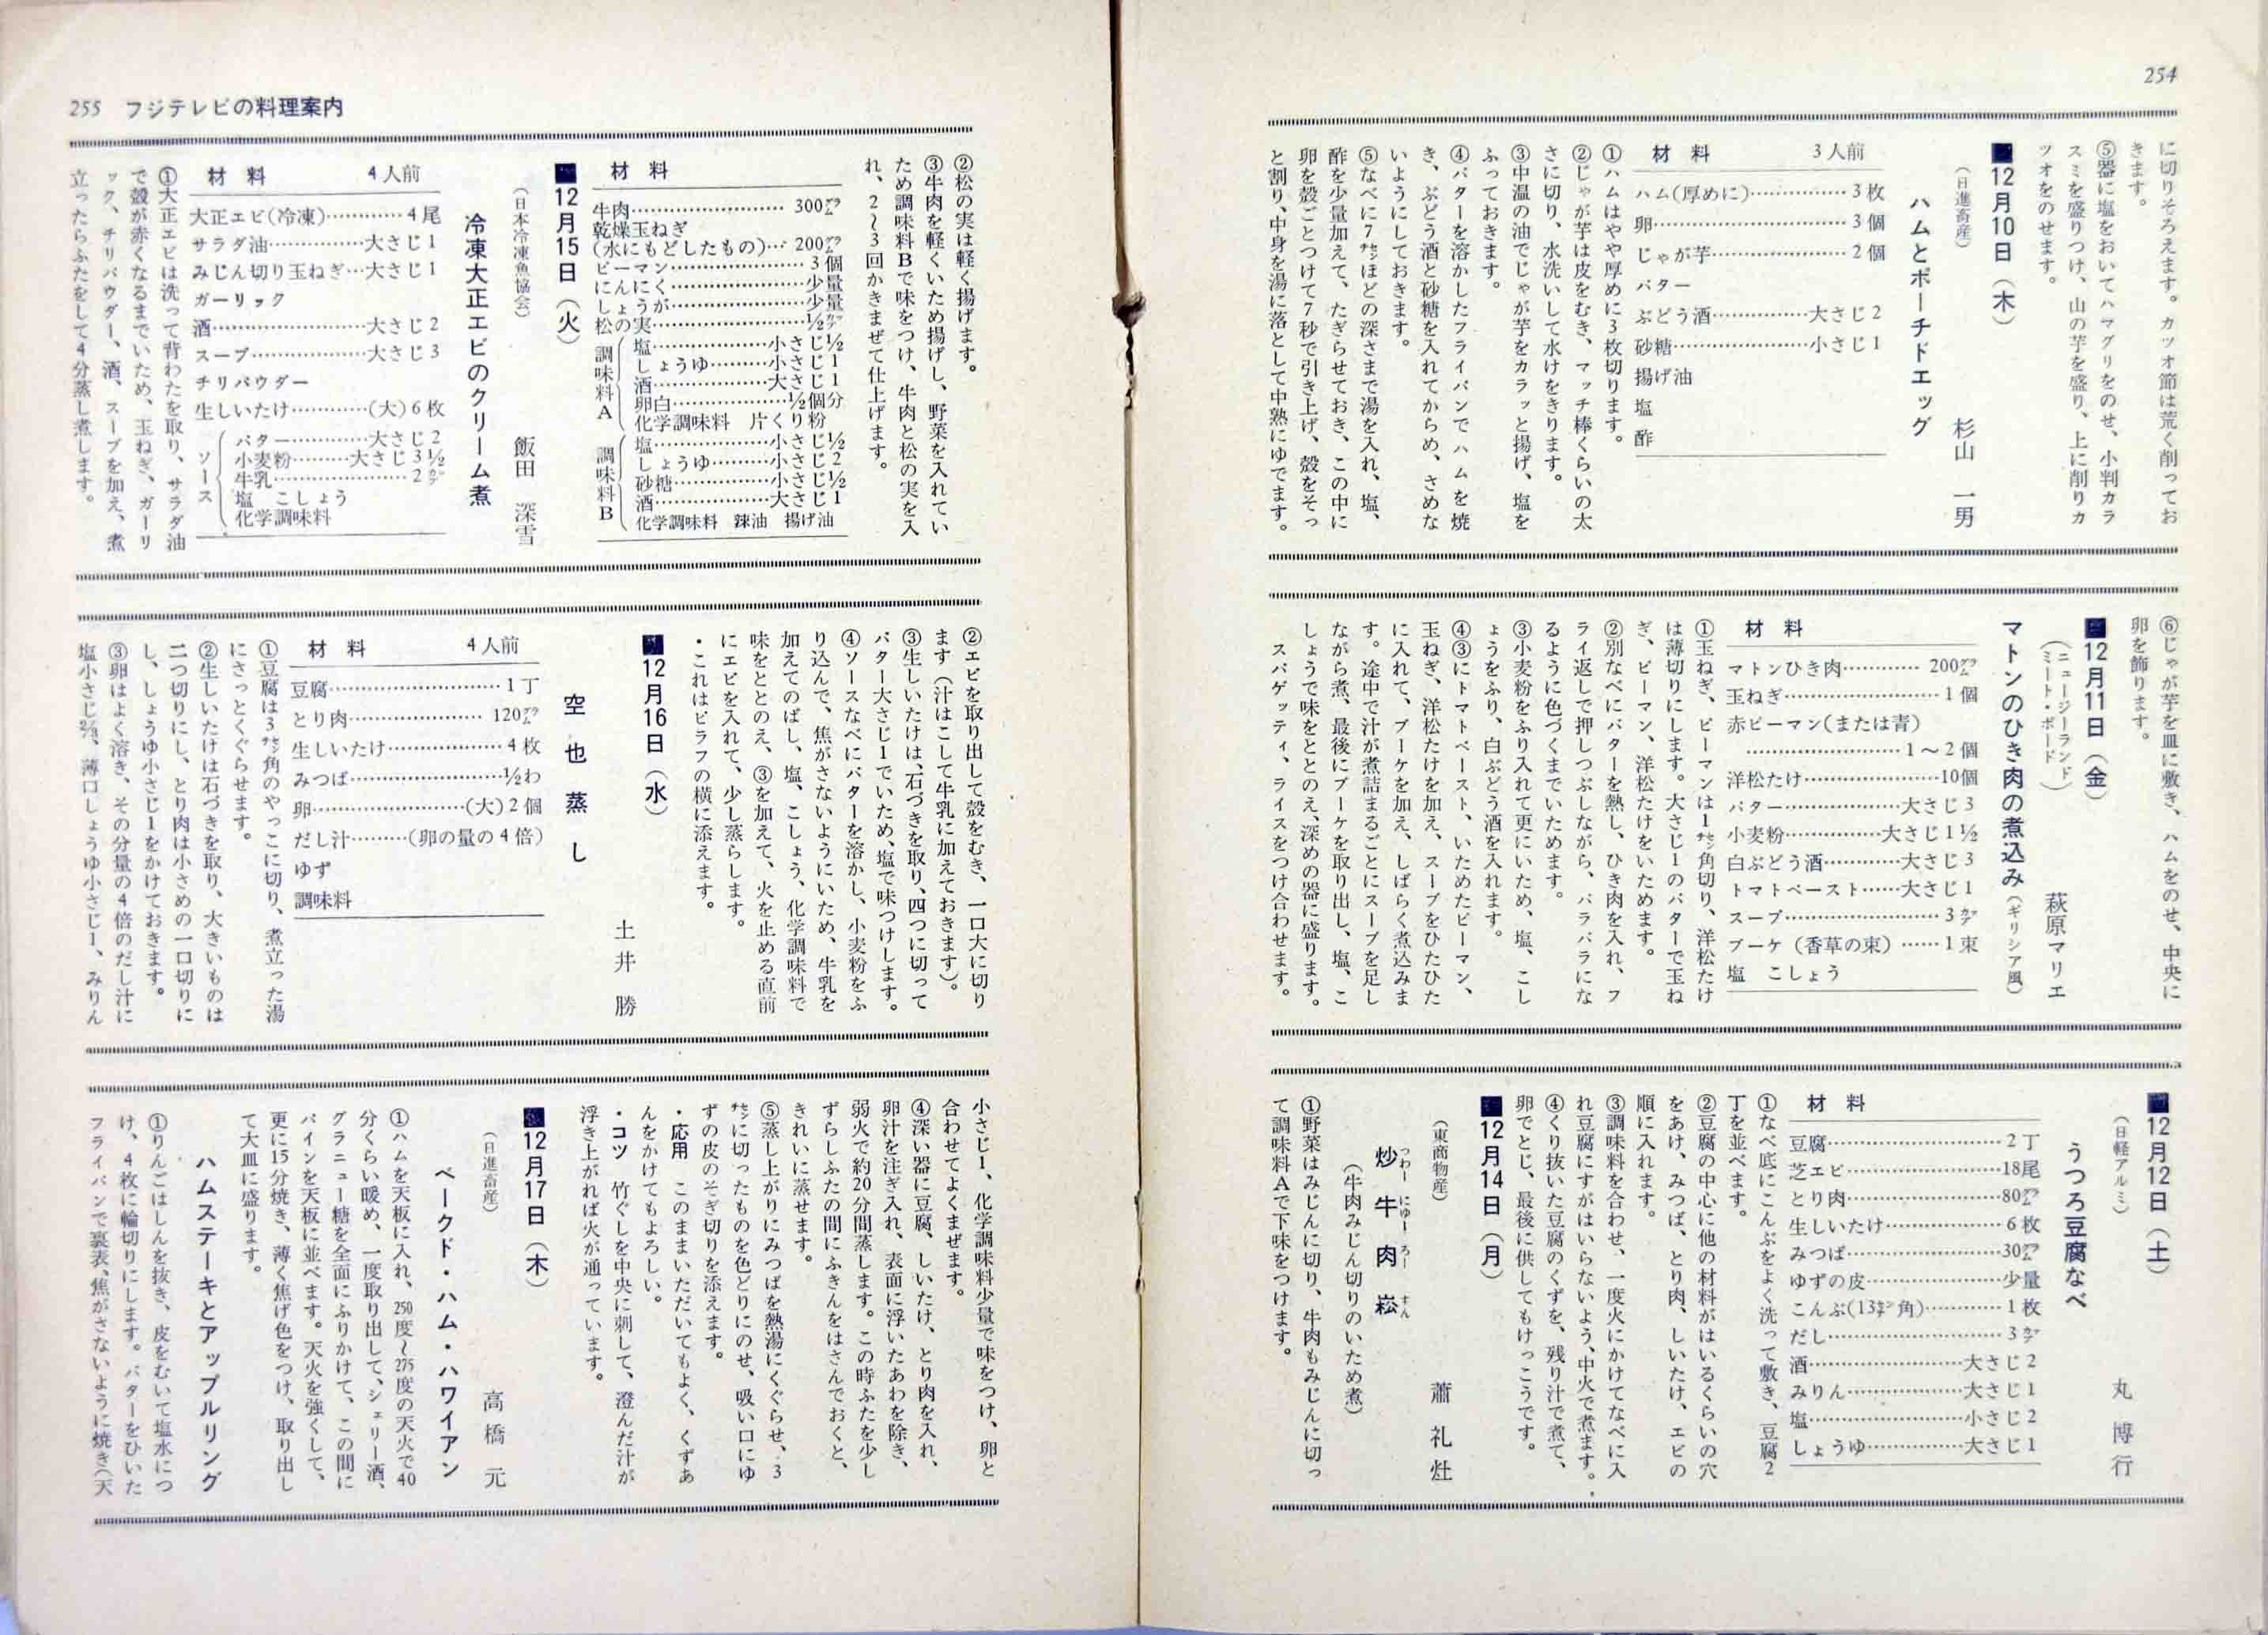 254
に切りそろえます。カツオ節は荒く削ってお
きます。
⑤器に塩をおいてハマグリをのせ、小判カラ
スミを盛りつけ、山の芋を盛り、上に削りカ
ツオをのせます。
■12月10日（木）
（日進畜産）　杉山　一男
ハムとポーチドエッグ
材　料　3人前
ハム(厚めに)……………3枚
卵……………3個
じゃが芋……………2個
バター
ぶどう酒……………大さじ2
砂糖……………小さじ1
揚げ油
塩
酢
①ハムはやや厚めに3枚切ります。
②じゃが芋は皮をむき、マッチ棒くらいの太
さに切り、水洗いして水けをきります。
③中温の油でじゃが芋をカラッと揚げ、塩を
ふっておきます。
④バターを溶かしたフライパンでハムを焼
き、ぶどう酒と砂糖を入れてからめ、さめな
いようにしておきます。
⑤なべに7㌢ほどの深さまで湯を入れ、塩、
酢を少量加えて、たぎらせておき、この中に
卵を殻ごとつけて7秒で引き上げ、殻をそっ
と割り、中身を湯に落として中熟にゆでます。
⑥じゃが芋を皿に敷き、ハムをのせ、中央に
卵を飾ります。
■12月11日（金）
（ニュージーランド
ミート・ボード）　萩原マリエ
マトンのひき肉の煮込み（ギリシア風）
材　料
マトンひき肉……………200㌘
玉ねぎ……………1個
赤ピーマン(または青)
……………1～2個
洋松たけ……………10個
バター……………大さじ3
小麦粉……………大さじ1½
白ぶどう酒……………大さじ3
トマトペースト……大さじ1
スープ……………3㌍
ブーケ（香草の束）……1束
塩　こしょう
①玉ねぎ、ピーマンは1㌢角切り、洋松たけ
は薄切りにします。大さじ1のバターで玉ね
ぎ、ピーマン、洋松たけをいためます。
②別なべにバターを熱し、ひき肉を入れ、フ
ライ返しで押しつぶしながら、バラバラにな
るように色づくまでいためます。
③小麦粉をふり入れて更にいため、塩、こし
ょうをふり、白ぶどう酒を入れます。
④③にトマトペースト、いためたピーマン、
玉ねぎ、洋松たけを加え、スープをひたひた
に入れて、ブーケを加え、しばらく煮込みま
す。途中で汁が煮詰まるごとにスープを足し
ながら煮、最後にブーケを取り出し、塩、こ
しょうで味をととのえ、深めの器に盛ります。
スパゲッティ、ライスをつけ合わせます。
■12月12日（土）
（日軽アルミ）　丸　博行
うつろ豆腐なべ
材　料
豆腐……………2丁
芝エビ……………18尾
とり肉……………80㌘
生しいたけ……………6枚
みつば……………30㌘
ゆずの皮……………少量
こんぶ(13㌢角)……………1枚
だし……………3㌍
酒……………大さじ2
みりん……………大さじ1
塩……………小さじ2
しょうゆ……………大さじ1
①なべ底にこんぶをよく洗って敷き、豆腐2
丁を並べます。
②豆腐の中心に他の材料がはいるくらいの穴
をあけ、みつば、とり肉、しいたけ、エビの
順に入れます。
③調味料を合わせ、一度火にかけてなべに入
れ豆腐にすがはいらないよう、中火で煮ます。
④くり抜いた豆腐のくずを、残り汁で煮て、
卵でとじ、最後に供してもけっこうです。
■12月14日（月）
（東商物産）　蕭　礼　灶
炒牛肉崧
つわー にゅー ろー すん
（牛肉みじん切りのいため煮）
①野菜はみじんに切り、牛肉もみじんに切っ
て調味料Aで下味をつけます。
255　フジテレビの料理案内
②松の実は軽く揚げます。
③牛肉を軽くいため揚げし、野菜を入れてい
ため調味料Bで味をつけ、牛肉と松の実を入
れ、2〜3回かきまぜて仕上げます。
材　料
牛肉……………300㌘
乾燥玉ねぎ
(水にもどしたもの)…200㌘
ピーマン……………3個
にんにく……………少量
しょうが……………少量
松の実……………½㌍
調味料A
塩……………小さじ½
しょうゆ……………小さじ1
酒……………大さじ1
卵白……………½個分
化学調味料　片くり粉
調味料B
塩……………小さじ½
しょうゆ……………小さじ2
砂糖……………小さじ½
酒……………大さじ1
化学調味料　辣油　揚げ油
■12月15日（火）
（日本冷凍魚協会）　飯田　深雪
冷凍大正エビのクリーム煮
材　料　4人前
大正エビ(冷凍)…………4尾
サラダ油……………大さじ1
みじん切り玉ねぎ…大さじ1
ガーリック
酒……………大さじ2
スープ……………大さじ3
チリパウダー
生しいたけ…………(大)6枚
ソース
バター…………大さじ2
小麦粉………大さじ3½
牛乳……………2㌍
塩　こしょう
化学調味料
①大正エビは洗って背わたを取り、サラダ油
で殻が赤くなるまでいため、玉ねぎ、ガーリ
ック、チリパウダー、酒、スープを加え、煮
立ったらふたをして4分蒸し煮します。
②エビを取り出して殻をむき、一口大に切り
ます（汁はこして牛乳に加えておきます）。
③生しいたけは、石づきを取り、四つに切って
バター大さじ1でいため、塩で味つけします。
④ソースなべにバターを溶かし、小麦粉をふ
り込んで、焦がさないようにいため、牛乳を
加えてのばし、塩、こしょう、化学調味料で
味をととのえ、③を加えて、火を止める直前
にエビを入れて、少し蒸らします。
・これはピラフの横に添えます。
■12月16日（水）
土井　勝
空也蒸し
材　料　4人前
豆腐……………1丁
とり肉……………120㌘
生しいたけ……………4枚
みつば……………½わ
卵……………(大)2個
だし汁………(卵の量の4倍)
ゆず
調味料
①豆腐は3㌢角のやっこに切り、煮立った湯
にさっとくぐらせます。
②生しいたけは石づきを取り、大きいものは
二つ切りにし、とり肉は小さめの一口切りに
し、しょうゆ小さじ1をかけておきます。
③卵はよく溶き、その分量の4倍のだし汁に
塩小さじ⅔、薄口しょうゆ小さじ1、みりん
小さじ1、化学調味料少量で味をつけ、卵と
合わせてよくまぜます。
④深い器に豆腐、しいたけ、とり肉を入れ、
卵汁を注ぎ入れ、表面に浮いたあわを除き、
弱火で約20分間蒸します。この時ふたを少し
ずらしふたの間にふきんをはさんでおくと、
きれいに蒸せます。
⑤蒸し上がりにみつばを熱湯にくぐらせ、3
㌢に切ったものを色どりにのせ、吸い口にゆ
ずの皮のそぎ切りを添えます。
・応用　このままいただいてもよく、くずあ
んをかけてもよろしい。
・コツ　竹ぐしを中央に刺して、澄んだ汁が
浮き上がれば火が通っています。
■12月17日（木）
（日進畜産）　高橋　元
ベークド・ハム・ハワイアン
①ハムを天板に入れ、250度〜275度の天火で40
分くらい暖め、一度取り出して、シェリー酒、
グラニュー糖を全面にふりかけて、この間に
パインを天板に並べます。天火を強くして、
更に15分焼き、薄く焦げ色をつけ、取り出し
て大皿に盛ります。
ハムステーキとアップルリング
①りんごはしんを抜き、皮をむいて塩水につ
け、4枚に輪切りにします。バターをひいた
フライパンで裏表、焦がさないように焼き（天